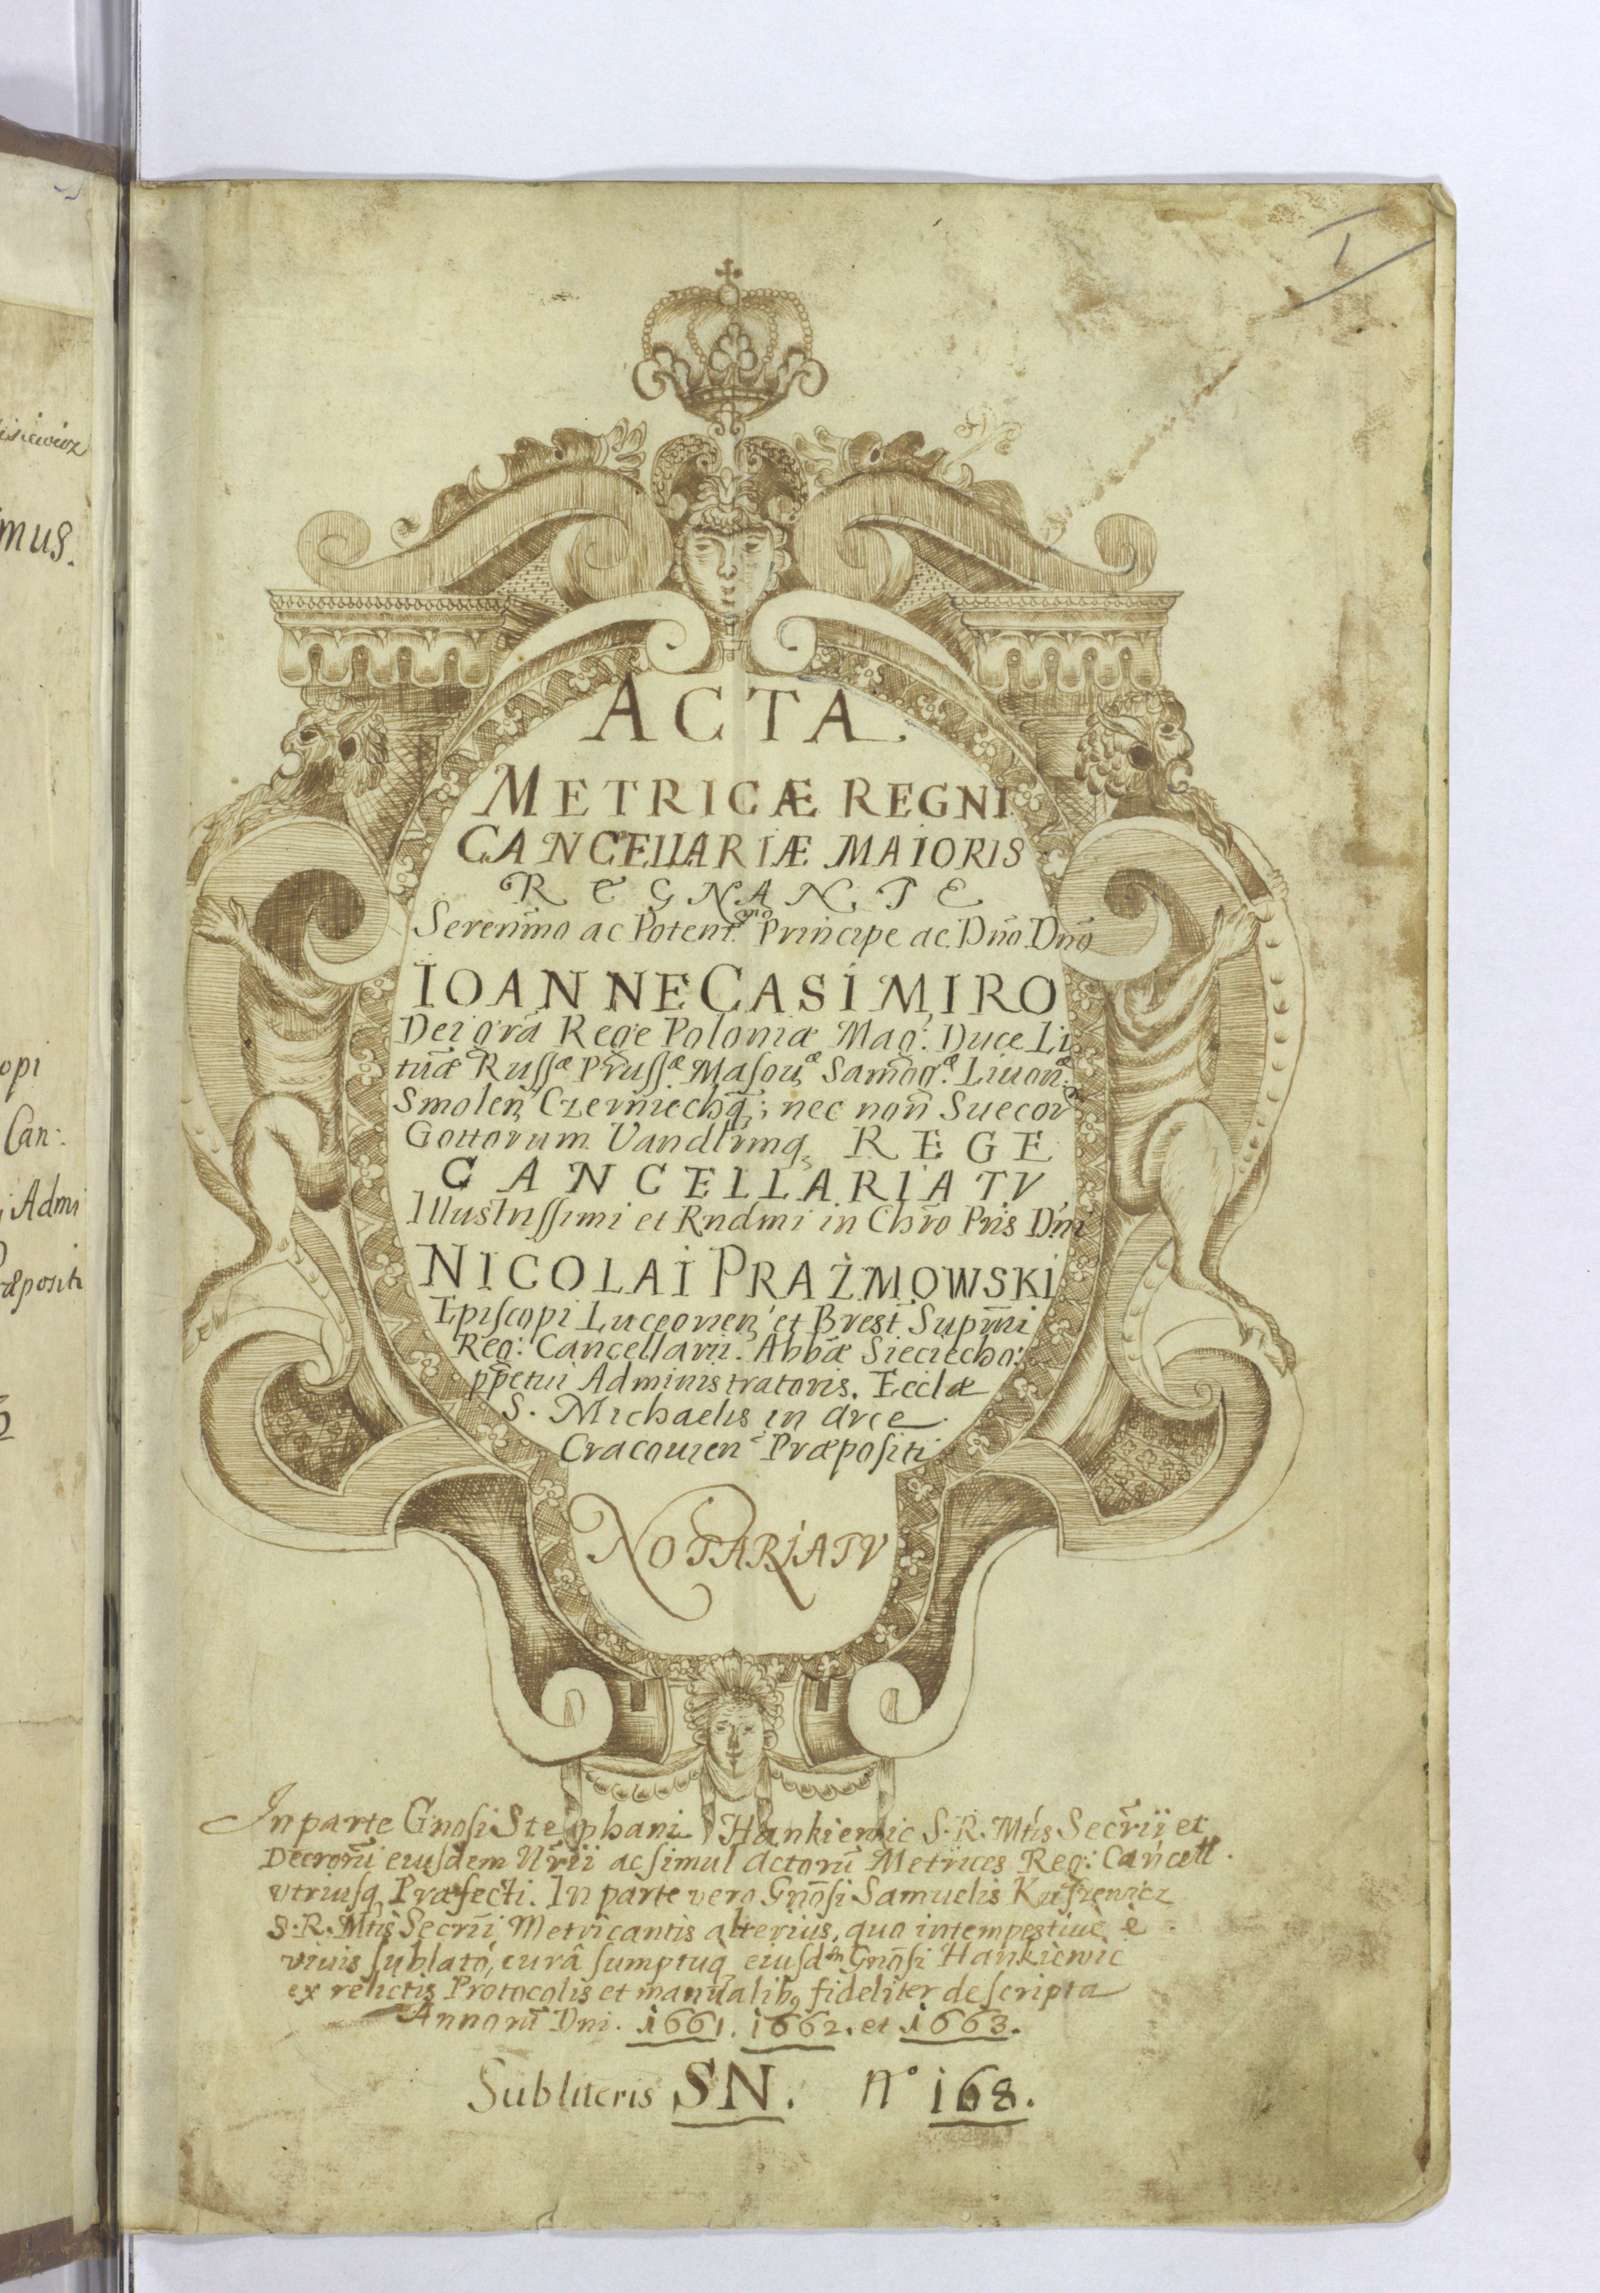 isiewicz
mus.
opi
Can:
Admi
æpositi
I
ACTA.
METRICÆ REGNI
CANCELLARIÆ MAIORIS
REGNANTE
Sereñimo ac Potent.mo Principe ac Dño Dño
IOANNE CASIMIRO
Dei grã Rege Poloniæ Mag: Duce Li
tuæ Russæ Prussæ Masouæ Samog.æ Liuonæ
Smolen Czerniechq; nec non Suecor
Gottorum Vandlrmq REGE
CANCELLARIATV
Illustrissimi et Rndmi in Chro Pris Dni
NICOLAI PRAŻMOWSKI
Episcopi Luceorien et Brest Supmi
Reg: Cancellarii. Abbæ Sieciecho:
ppetui Administratoris. Ecclæ
S. Michaelis in arce
Cracouien Præpositi
NOTARIATV
In parte Gnosi Stephani Hankiewic S. R. Mtis Secrii et
Decrorũ eiusdem Nrii ac simul Actorũ Metrices Reg: Cancell.
vtriusq Præfecti. In parte vero Gnosi Samuelis Kuszewicz
S. R. Mtis Secrii Metricantis alterius, quo intempestiue è
viuis sublato, curâ sumptuq eiusdm Gnosi Hankiewic
ex relictis Protocolis et manualibq fideliter descripta
Annorũ Dni. 1661. 1662. et 1663.
Sub literis SN. No 168.